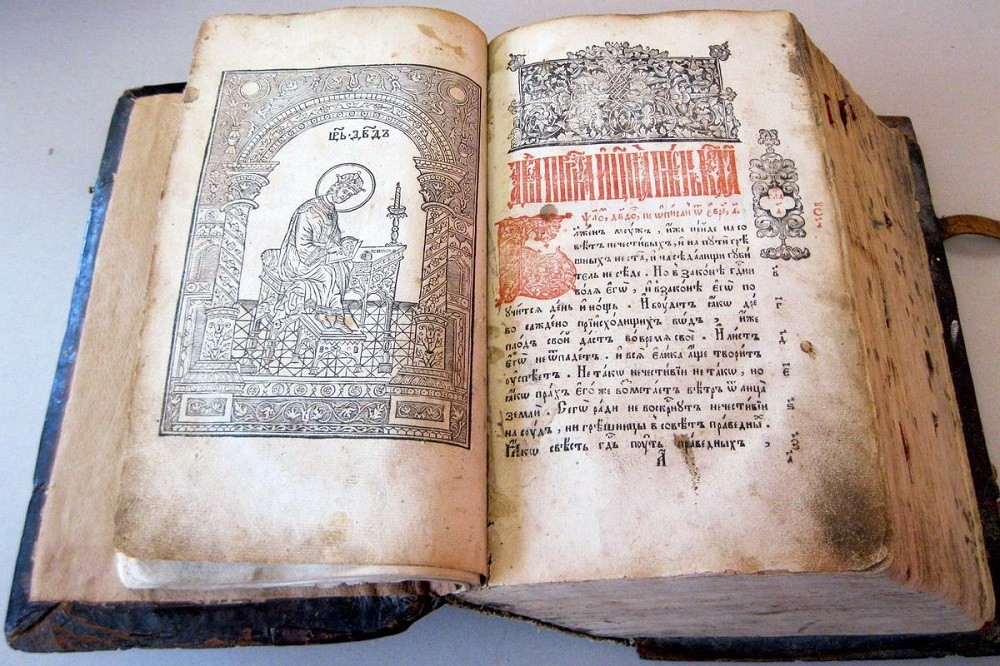 цр҃ь · дв҃дъ
лженъ моужъ , иже не иде на со
вѣтъ нечестивыхъ , и на пути грѣ
шныхъ не ста , и на сѣдалищи гꙋби
тель не сѣде . Но в законѣ гд҃ни
волѧ єгѡ , и в законѣ єгѡ по
ꙋчитсѧ день и нощь . И боудетъ ꙗкѡ дре
во саждено при исходищихъ водъ , иже
плодъ свой дастъ во времѧ своє . И листъ
єгѡ не ѿпадетъ . и всѧ єлика аще творитъ
оуспѣетъ . Не такѡ нечестивїи не такѡ , но
ꙗкѡ прахъ єгѡже возметаетъ вѣтръ ѿ лица
земли . Сегѡ ради не воскрнꙋтъ нечестивїи
на соудъ , ни грѣшницы в совѣтъ праведныⷯ .
Ꙗкѡ свѣсть гдⷭ҇ь поуть праведныхъ ,
А